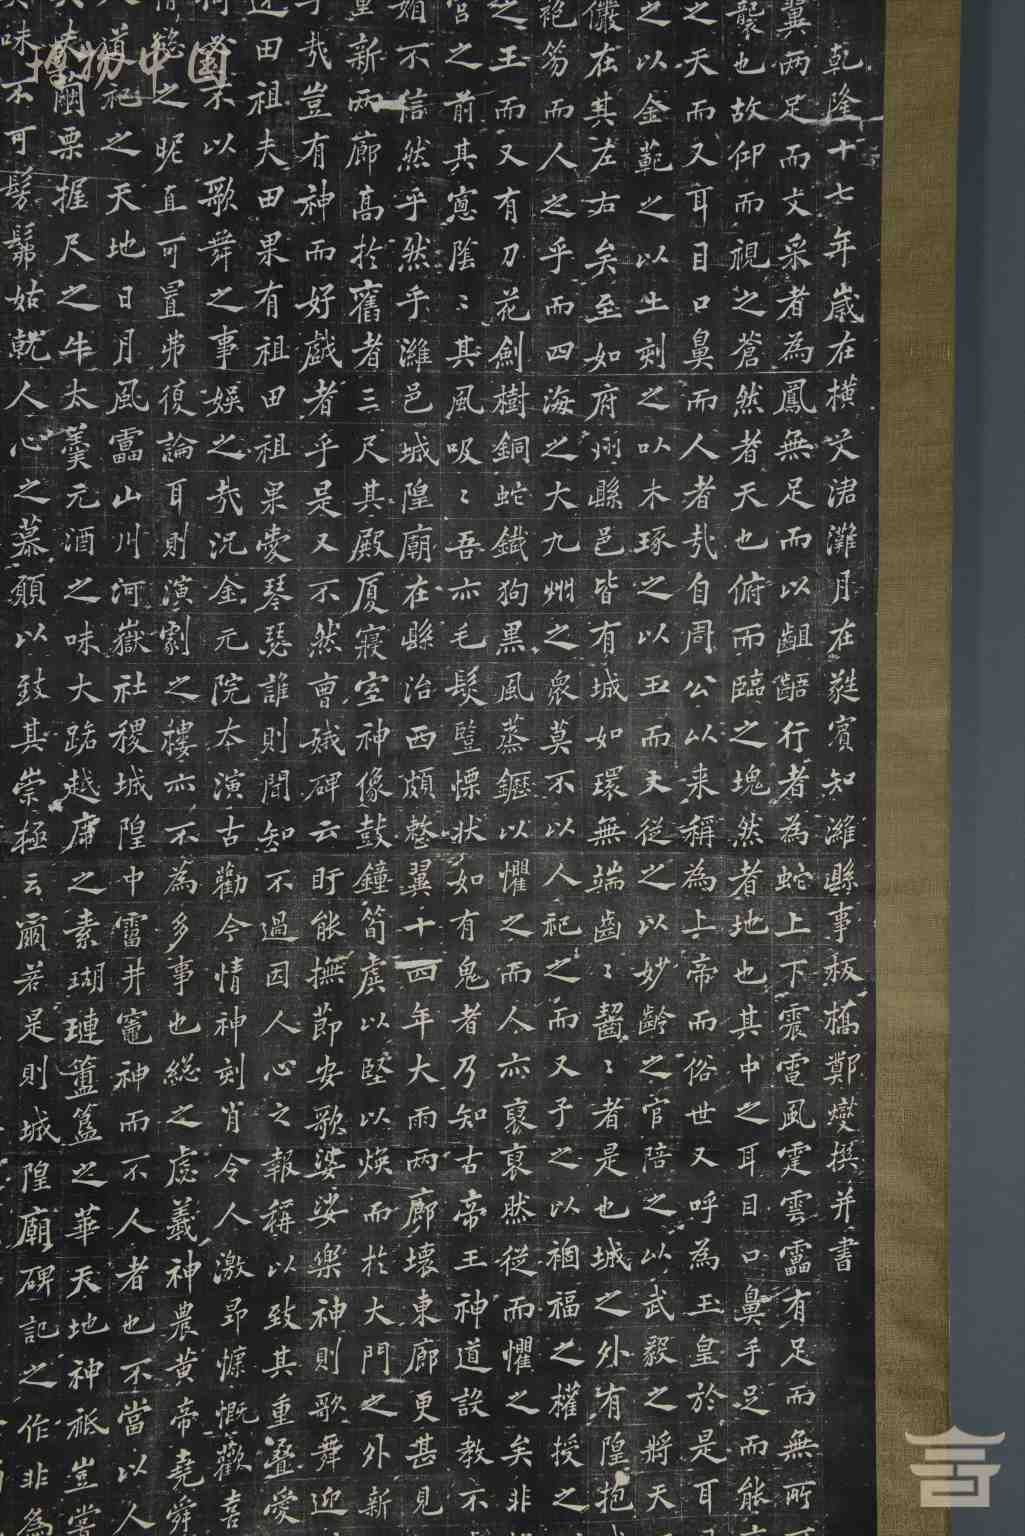 乾隆十七年歲在橫艾涒灘月在蕤賓知濰縣事板橋鄭燮撰并書
翼兩足而文采者為鳳無足而以齟齬行者為蛇上下震電風霆雲靁有足而無所
襲也故仰而視之蒼然者天也俯而臨之塊然者地也其中之耳目口鼻手足而能
之天而又耳目口鼻而人者哉自周公以来稱為上帝而俗世又呼為玉皇於是耳
之以金範之以土刻之以木琢之以玉而又從之以妙齡之官陪之以武毅之將天
儼在其左右矣至如府州縣邑皆有城如環無端齒〻齧〻者是也城之外有隍抱
袍笏而人之乎而四海之大九州之衆莫不以人祀之而又予之以禍福之權授之
之王而又有刀花劍樹銅蛇鐵狗黑風蒸鑩以懼之而人亦裒裒然從而懼之矣非
宮之前其窻陰〻其風吸〻吾亦毛髮豎慄狀如有鬼者乃知古帝王神道設教不
媚不信然乎然乎濰邑城隍廟在縣治西頗整翼十四年大雨兩廊壞東廊更甚見
重新兩廊高於舊者三尺其殿厦寢室神像鼓鐘筍虡以堅以煥而於大門之外新
乎哉豈有神而好戲者乎是又不然曹娥碑云盱能撫節安歌婆娑樂神則歌舞迎
田祖夫田果有祖田祖果愛琴瑟誰則聞知不過因人心之報稱以致其重叠愛
不以歌舞之事娛之哉況金元院本演古勸今情神刻肖令人激昂慷慨歡喜
之昵直可置弗復論耳則演劇之樓亦不為多事也總之虙羲神農黃帝堯舜
道祀之天地日月風靁山川河嶽社稷城隍中霤井竈神而不人者也不當以人
繭栗握尺之牛太羹元酒之味大路越席之素瑚璉簠簋之華天地神祇豈嘗
味不可髣髴姑就人心之慕願以致其崇極云爾若是則城隍廟碑記之作非為
博物中国